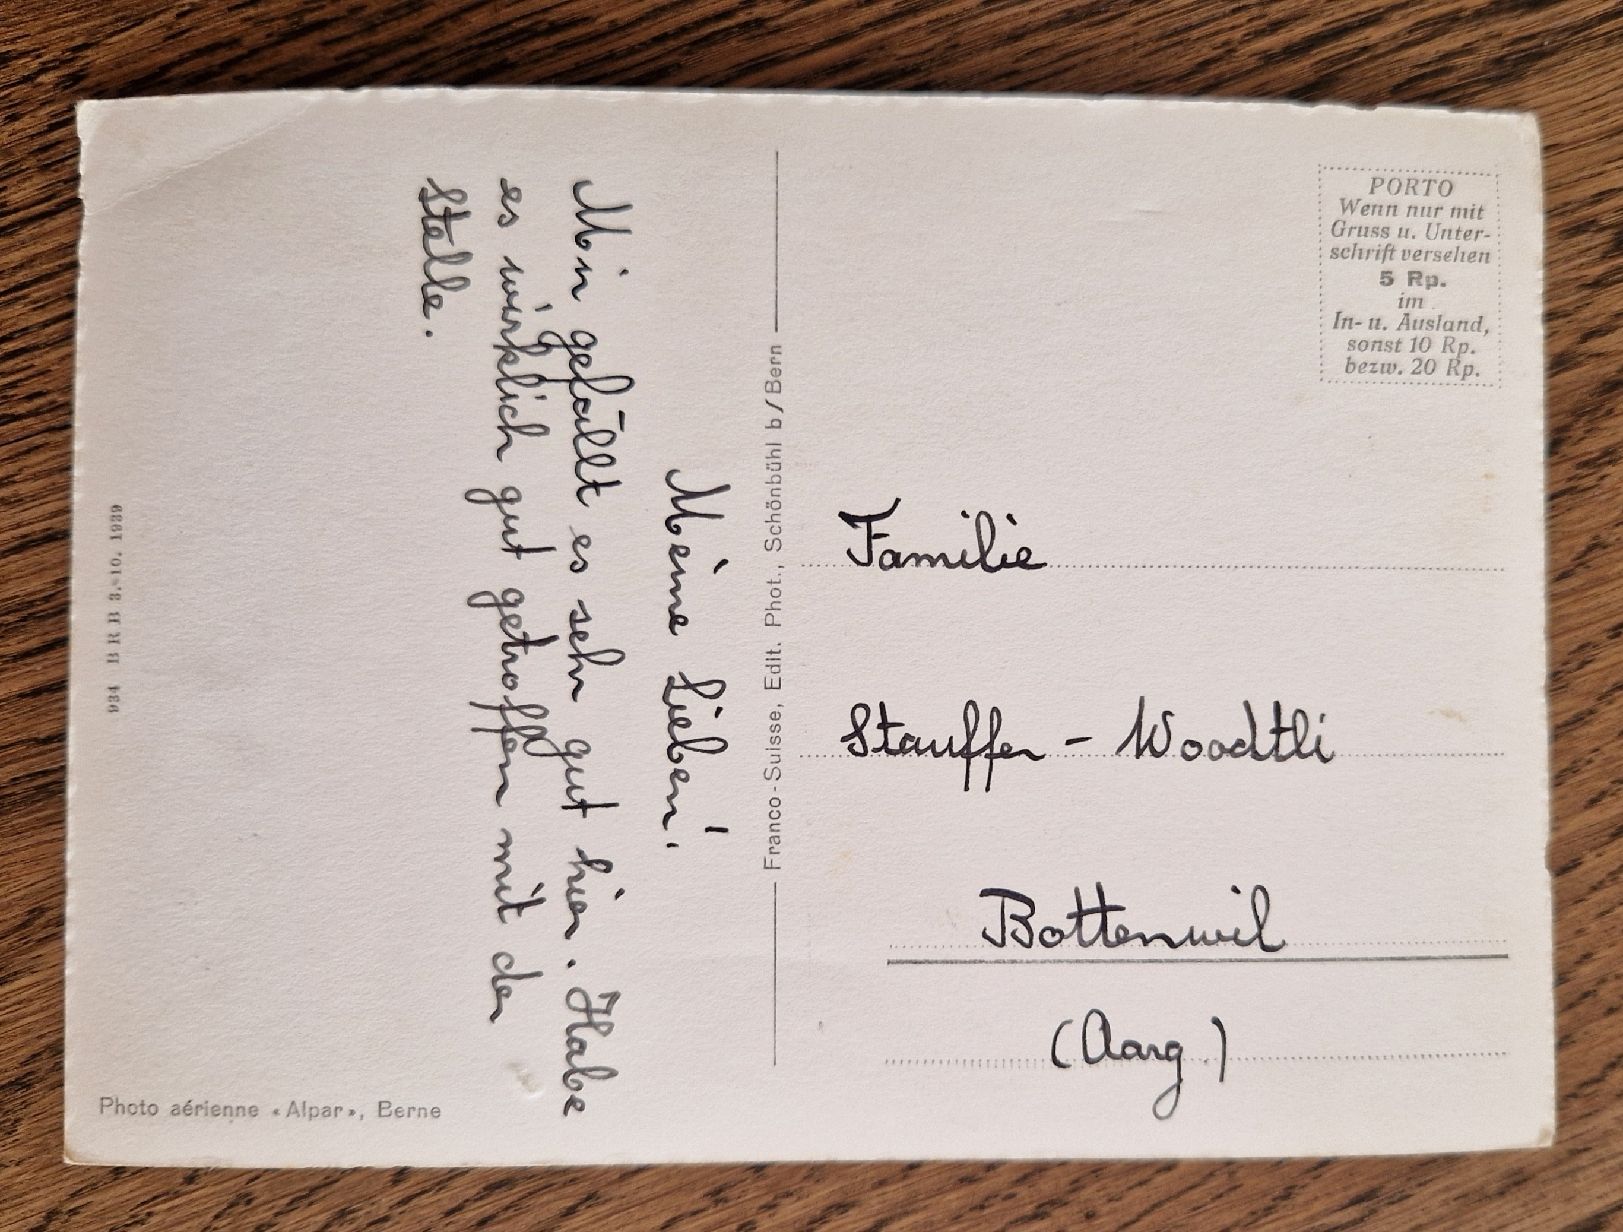 Meine Lieben!
Mir gefällt es sehr gut hier. Habe
es wirklich gut getroffen mit der
Stelle.
934 BRB 3.10.1939
Photo aérienne «Alpar», Berne
Franco-Suisse, Edit. Phot., Schönbühl b/Bern
PORTO
Wenn nur mit
Gruss u. Unter-
schrift versehen
5 Rp.
im
In- u. Ausland,
sonst 10 Rp.
bezw. 20 Rp.
Familie
Stauffer - Woodtli
Bottenwil
(Aarg.)